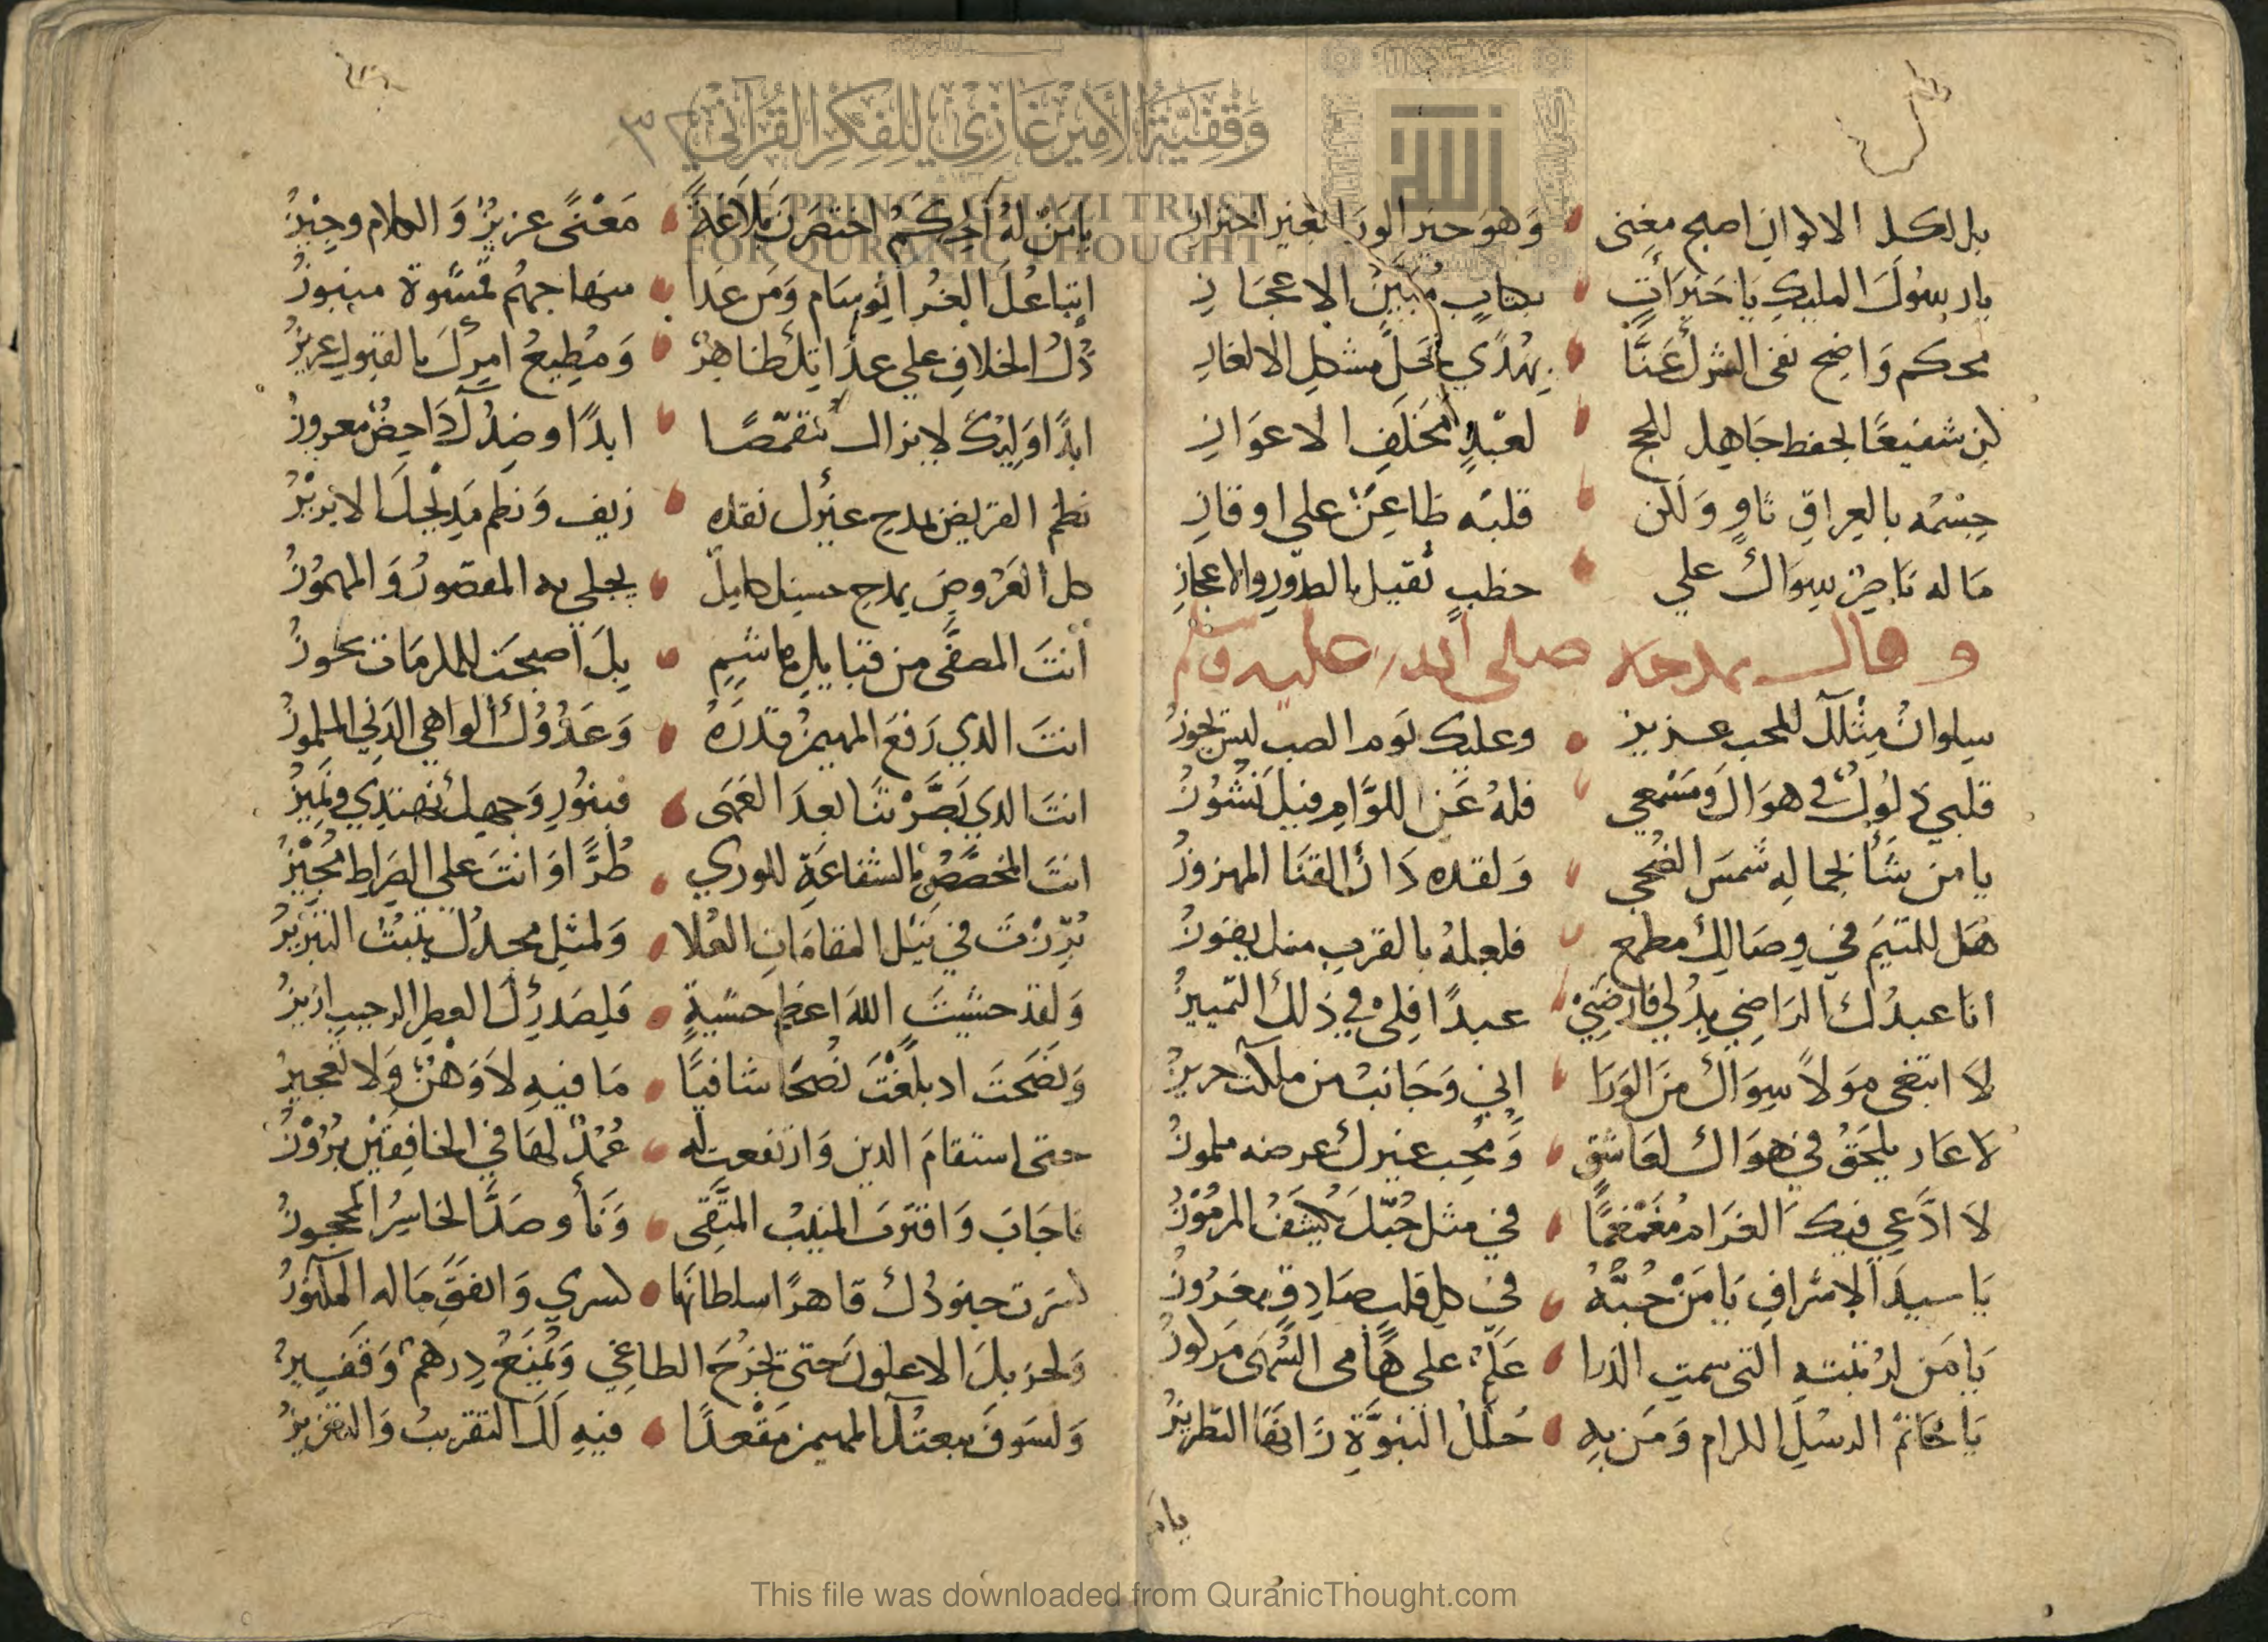 وَقْفِيَّةُ الأَمِيرْ غَازِي لِلْفِكْرِ القُرْآنِي
THE PRINCE GHAZI TRUST
FOR QURANIC THOUGHT
بل لكل الالوان اصبح مغنى وَهوَ خير الورا بغير احتراز
يا رسُولَ المليكِ يا خيرَ آتٍ بكتابٍ مُبَيّن الاعجَازِ
محكم وَاضح نفى الشرك عَنَّا بِهُدًي حَلَّ مشكل الالغازِ
كن شفيعًا لحفظ جَاهل للحج لعَبْدٍ مُخَلَفِ الاعوَازِ
جِسْمُه بالعِراقِ ثاوٍ وَلكن قلبُه ظاعِنٌ علي اوفازِ
مَا له نَاصِرٌ سِوَاكَ علي خطبٍ ثقيل بالصدور والاعجازِ
وقال يمدحه صلى الله عليه وسلم
سلوانُ مِثْلكَ للمحب عزيز وعليك لَوم الصب ليسَ يجوزُ
قلبي ذلولٌ في هوَاكَ ومَسْمعي فلهُ عَن اللوَّامِ فيكَ نُشُوزُ
يا من شَنَأ لجمالِه شمسَ الضُحي وَلقده دَانَ القنَا المهزوزُ
هَل للمتيَمِ في وِصَالِكَ مطمع فلعلهُ بالقربِ منك يفوزُ
انا عبدُك الرَاضِي بذُلي فارضَنِيْ عبدًا فلِى في ذلك التمييزُ
لا ابتغى موَلاً سِوَاكَ مِنَ الوَرَا اني وَجَانب من ملكت حريزُ
لا عَار يلحَقُ في هوَاكَ لعَاشقٍ وَمُحِب غيرك عرضه ملموزُ
لا ادَّعي فيكَ الغرَام مُغَمْغمًا في مثل حُبّكَ يُكشَفُ المرمُوزُ
يَا سيدَ الاشرافِ يَا مَنْ حُبُّهُ في كل قلبٍ صَادِقٍ مغرُوزُ
يَا مَن لرُتبته التى سمتِ الذرا عَلَمٌ على هَامى السُّهَى مركوزُ
يَا خَاتمَ الرسْلِ الكرام وَمَن بِهِ حُللُ النبوَّةِ زَانهَا التطريزُ
يامن
يا مَنْ لهُ حِكَمُ اختصرنَ بَلاغةً مَعْنًى عزيزٌ وَالكلام وجيزُ
اتباعُكَ الغُر الوسَام وَمَن غدَا منهاجهم قسْوة منبوزُ
ذُل الخلافِ علي عدَاتِكَ ظاهِرٌ وَمُطِيعُ امرِكَ بالقبولِ عزيزُ
ابدًا وَليّكَ لايزال مُتقمّصًا ابدًا وضِدُكَ دَاحِضٌ معروزُ
نظم القريض بمدح غيرك نقده زيف وَنظم مَديْحِكَ الابريزُ
كل العَرُوضِ بمدحِ حسنك كامِلٌ يحلي به المقصورُ وَالمهموزُ
أنتَ المصفَّى من قبايلِ هاشمِ بكَ اصبحَت للمكرمَات تحوزُ
انتَ الذي رَفعَ المهيمنُ قدرَهُ وَعَدُوُّكَ الواهي الدَنِي الملموزُ
انتَ الذي بَصَّرْتنَا بعدَ العَمَى فبنُورِ وَجهك نهتدِي ونَميزُ
انتَ المخصَّصُ بالشفاعَةِ للوري طُرًّا وَانتَ علي الصِرَاط مُجِيْزُ
بُرِّزْتَ في نيْل المقامَاتِ العُلا وَلمثلِ مجدكَ يثبُتُ التبريزُ
وَلقد خشيتَ اللهَ اعظم خشيةٍ فلِصَدرِكَ العطِر الرحيبِ ازيزُ
وَنصَحْتَ اذ بلغْتَ نُصحًا شافيًا مَا فيهِ لاَ وَهْنٌ وَلا تعجيزُ
حتى استقامَ الدين وَارتفعت له عُمُدٌ لهَا في الخافِقَيْن بُرُوْزُ
فاجَابَ وَاقترَبَ المنيبُ المتَّقِى وَنأَى وصَدَّ الخاسِرُ المحجوزُ
كسَرت جنودُك قاهرًا سلطانَهَا كسري وَانفق مَاله المكنوزُ
وَلحزبكَ الاعلونَ حتى تخرُجَ الطاغي وَيُمْنَعُ دِرهمٌ وَقفيزُ
وَلسَوفَ يبعثكَ المهيمن مَقْعدًا فيهِ لكَ التقريبُ وَالتعزيزُ
This file was downloaded from QuranicThought.com